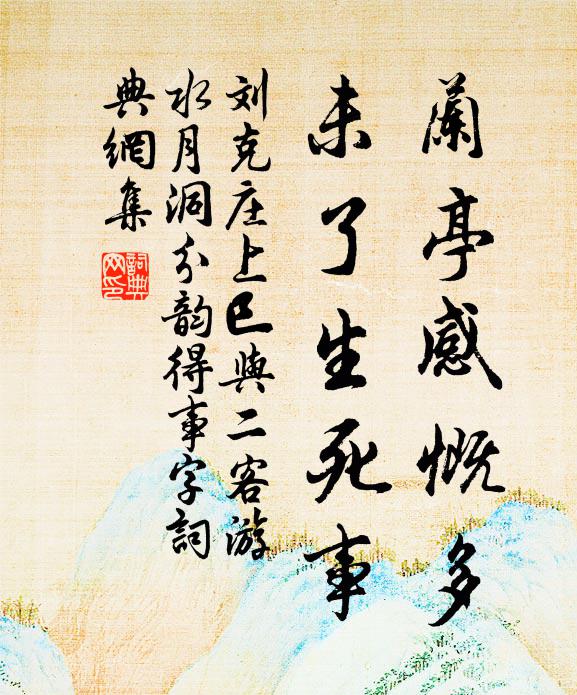 蘭亭感慨多
未了生死事
刘克庄上巳與二客游
水月洞分韵得事字詞
典網集
詞典
网印